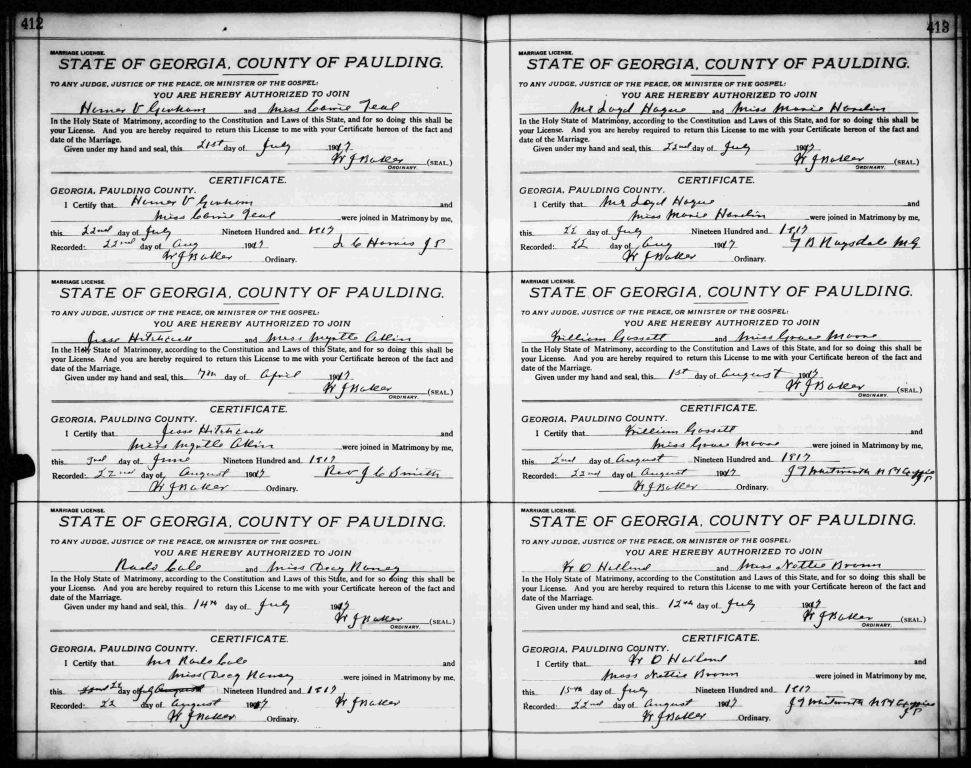 412
MARRIAGE LICENSE.
STATE OF GEORGIA, COUNTY OF PAULDING.
TO ANY JUDGE, JUSTICE OF THE PEACE, OR MINISTER OF THE GOSPEL:
YOU ARE HEREBY AUTHORIZED TO JOIN
Homer V and Miss Teal
In the Holy State of Matrimony, according to the Constitution and Laws of this State, and for so doing this shall be
your License. And you are hereby required to return this License to me with your Certificate hereon of the fact and
date of the Marriage.
Given under my hand and seal, this 21st day of July 1917
W J Baker (SEAL.)
ORDINARY.
CERTIFICATE.
GEORGIA, PAULDING COUNTY.
I Certify that Homer V and
Miss Teal were joined in Matrimony by me,
this 22nd day of July Nineteen Hundred and 1917
Recorded: 22nd day of Aug 1917 J P
W J Baker Ordinary.
MARRIAGE LICENSE.
STATE OF GEORGIA, COUNTY OF PAULDING.
TO ANY JUDGE, JUSTICE OF THE PEACE, OR MINISTER OF THE GOSPEL:
YOU ARE HEREBY AUTHORIZED TO JOIN
Jesse Hitchcock and Miss Myrtle
In the Holy State of Matrimony, according to the Constitution and Laws of this State, and for so doing this shall be
your License. And you are hereby required to return this License to me with your Certificate hereon of the fact and
date of the Marriage.
Given under my hand and seal, this 7th day of April 1917
W J Baker (SEAL.)
ORDINARY.
CERTIFICATE.
GEORGIA, PAULDING COUNTY.
I Certify that Jesse Hitchcock and
Miss Myrtle were joined in Matrimony by me,
this 3rd day of June Nineteen Hundred and 1917
Recorded: 22nd day of August 1917 Rev J C Smith
W J Baker Ordinary.
MARRIAGE LICENSE.
STATE OF GEORGIA, COUNTY OF PAULDING.
TO ANY JUDGE, JUSTICE OF THE PEACE, OR MINISTER OF THE GOSPEL:
YOU ARE HEREBY AUTHORIZED TO JOIN
Cole and Miss Raney
In the Holy State of Matrimony, according to the Constitution and Laws of this State, and for so doing this shall be
your License. And you are hereby required to return this License to me with your Certificate hereon of the fact and
date of the Marriage.
Given under my hand and seal, this 14th day of July 1917
W J Baker (SEAL.)
ORDINARY.
CERTIFICATE.
GEORGIA, PAULDING COUNTY.
I Certify that Mr Cole and
Miss Raney were joined in Matrimony by me,
this day of July Nineteen Hundred and 1917
Recorded: 22 day of August 1917 W J Baker
W J Baker Ordinary.
413
MARRIAGE LICENSE.
STATE OF GEORGIA, COUNTY OF PAULDING.
TO ANY JUDGE, JUSTICE OF THE PEACE, OR MINISTER OF THE GOSPEL:
YOU ARE HEREBY AUTHORIZED TO JOIN
Mr Loyd Hogue and Miss Marie
In the Holy State of Matrimony, according to the Constitution and Laws of this State, and for so doing this shall be
your License. And you are hereby required to return this License to me with your Certificate hereon of the fact and
date of the Marriage.
Given under my hand and seal, this 22nd day of July 1917
W J Baker (SEAL.)
ORDINARY.
CERTIFICATE.
GEORGIA, PAULDING COUNTY.
I Certify that Mr Loyd Hogue and
Miss Marie were joined in Matrimony by me,
this 22 day of July Nineteen Hundred and 1917
Recorded: 22 day of Aug 1917 Ragsdale M.G.
W J Baker Ordinary.
MARRIAGE LICENSE.
STATE OF GEORGIA, COUNTY OF PAULDING.
TO ANY JUDGE, JUSTICE OF THE PEACE, OR MINISTER OF THE GOSPEL:
YOU ARE HEREBY AUTHORIZED TO JOIN
William Gossett and Miss Grace Moore
In the Holy State of Matrimony, according to the Constitution and Laws of this State, and for so doing this shall be
your License. And you are hereby required to return this License to me with your Certificate hereon of the fact and
date of the Marriage.
Given under my hand and seal, this 1st day of August 1917
W J Baker (SEAL.)
ORDINARY.
CERTIFICATE.
GEORGIA, PAULDING COUNTY.
I Certify that William Gossett and
Miss Grace Moore were joined in Matrimony by me,
this 2nd day of August Nineteen Hundred and 1917
Recorded: 22nd day of August 1917 J T Whitworth
W J Baker Ordinary.
MARRIAGE LICENSE.
STATE OF GEORGIA, COUNTY OF PAULDING.
TO ANY JUDGE, JUSTICE OF THE PEACE, OR MINISTER OF THE GOSPEL:
YOU ARE HEREBY AUTHORIZED TO JOIN
W O Holland and Miss Nettie Brown
In the Holy State of Matrimony, according to the Constitution and Laws of this State, and for so doing this shall be
your License. And you are hereby required to return this License to me with your Certificate hereon of the fact and
date of the Marriage.
Given under my hand and seal, this 12th day of July 1917
W J Baker (SEAL.)
ORDINARY.
CERTIFICATE.
GEORGIA, PAULDING COUNTY.
I Certify that W O Holland and
Miss Nettie Brown were joined in Matrimony by me,
this 15th day of July Nineteen Hundred and 1917
Recorded: 22nd day of August 1917 J T Whitworth
W J Baker Ordinary.